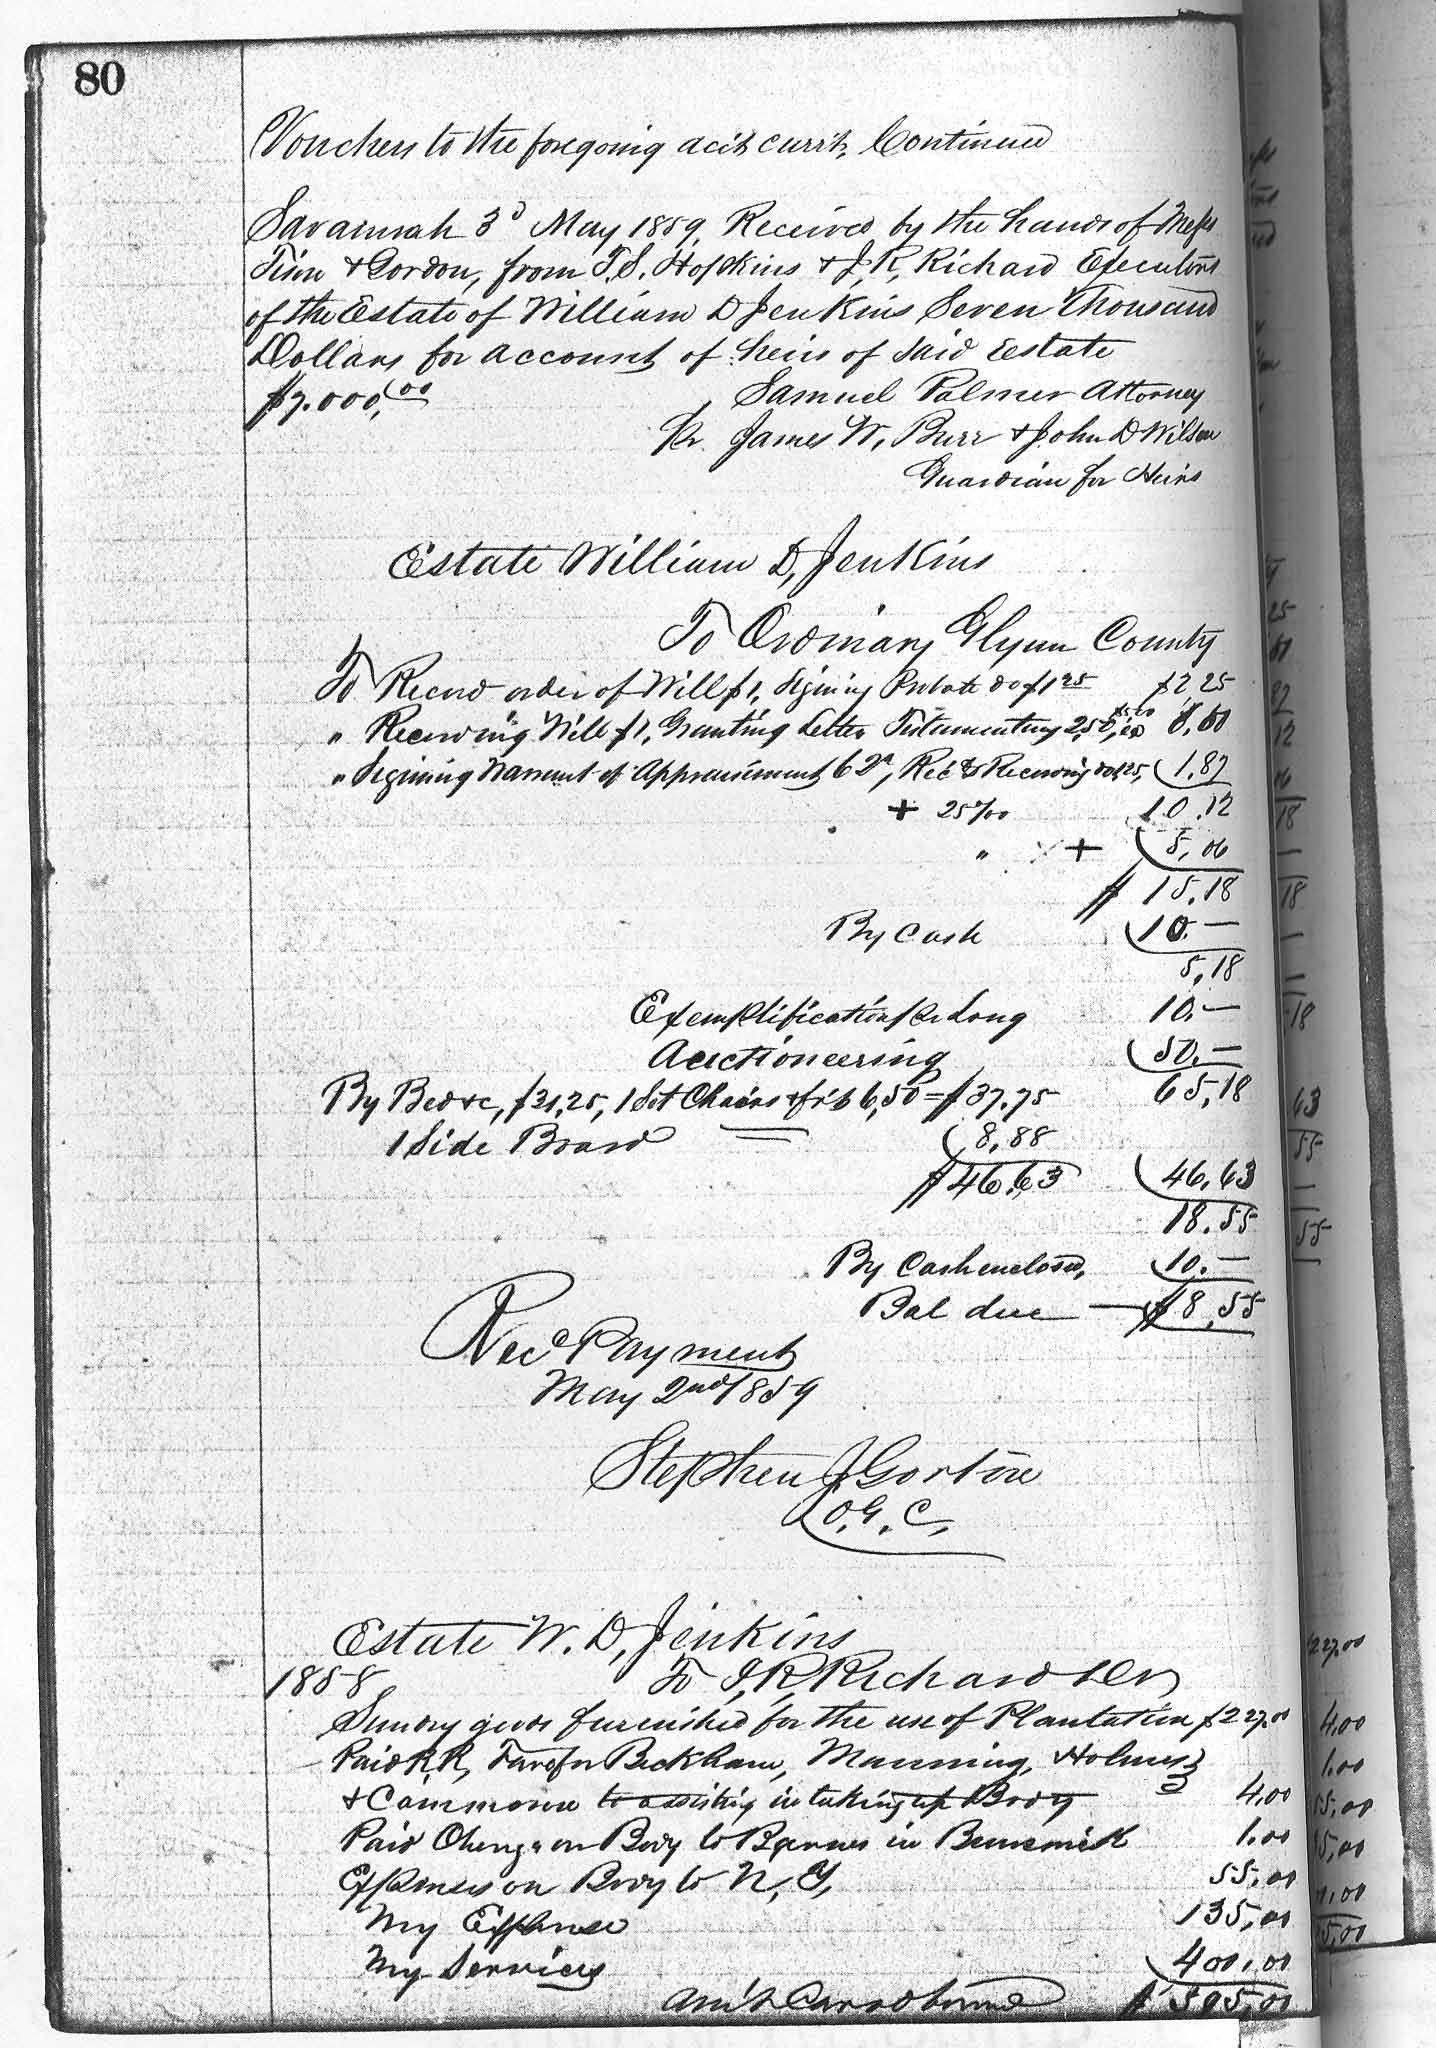 80
Vouchers to the foregoing acct currt, Continued
Savannah 3d May 1859. Received by the hands of Messrs
Tison & Gordon, from T.S. Hopkins & J.R. Richard Executors
of the Estate of William D Jenkins Seven Thousand
Dollars for account of heirs of said Estate
$7.000,00 Samuel Palmer Attorney
Pr. James W. Burr & John D Wilson
Guardian for Heirs
Estate William D, Jenkins
To Ordinary Glynn County
To Record order of Will $1, Signing Probate do $1 25 $2,25
" Receiving Will $1, Granting Letter Testamentary 2,50, 6,00
" Signing Warrant of Appraisement 62, Rec & Receiving do 125, 1.87
+ 25 %00 10.12
" + 5,06
$ 15,18
By Cash 10.—
5,18
Exemplification pr Long 10.—
Auctioneering 50.—
65,18
By Bed &c, $31,25, 1 Set Chairs & frt 6,50 = $37.75
1 Side Board 8,88
$46.63 46,63
18.55
By Cash enclosed, 10.—
Bal due — $8,55
Recd Payment
May 2nd 1859
Stephen J Gorton
O.G.C.
Estate W. D, Jenkins
1858 To J,R, Richards Dr
Sundry goods furnished for the use of Plantation $227.00
Paid R,R, Fare for Beckham, Manning, & Holmes
& Cammorn to assisting in taking up Body 4,00
Paid Charge on Body to Barnes in Brunswick 1.00
Expenses on Body to N, Y, 55,00
My Expense 135,00
My Services 400,00
Am't Car'd forward $595,00
227.00
4,00
1.00
55,00